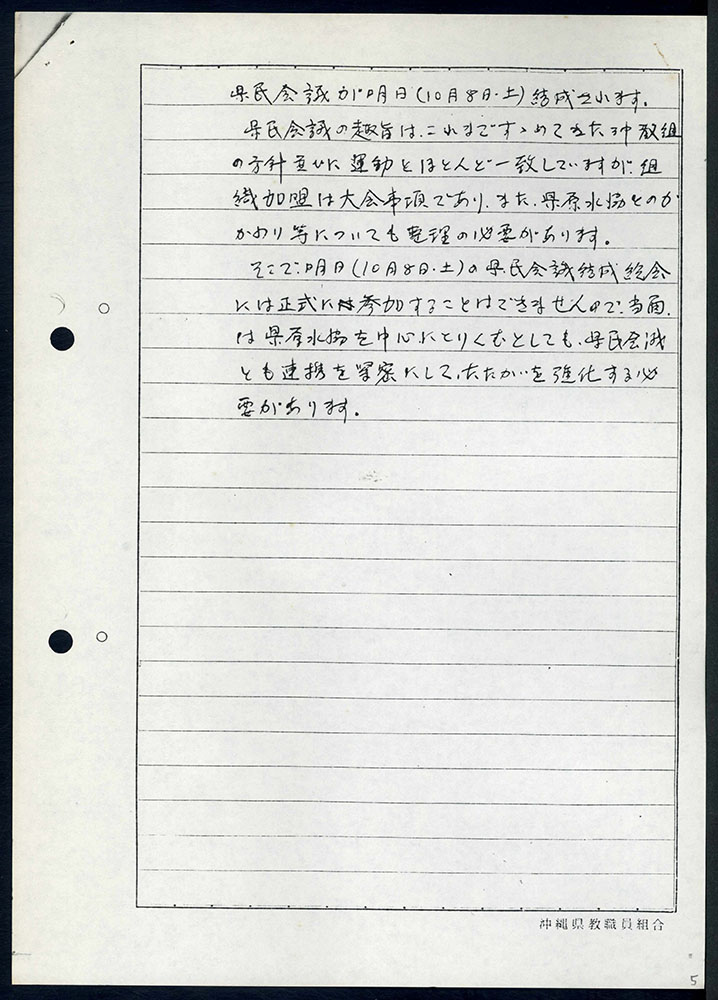 県民会議が明日(10月8日・土)結成されます。
県民会議の趣旨は、これまですゝめてきた沖教組
の方針並びに運動とほとんど一致していますが、組
織加盟は大会事項であり、また、県原水協とのか
かわり等についても整理の必要があります。
そこで、明日(10月8日・土)の県民会議結成総会
には正式に参加することはできませんので、当面、
は県原水協を中心にとりくむとしても、県民会議
とも連携を緊密にして、たたかいを強化する必
要があります。
沖縄県教職員組合
5